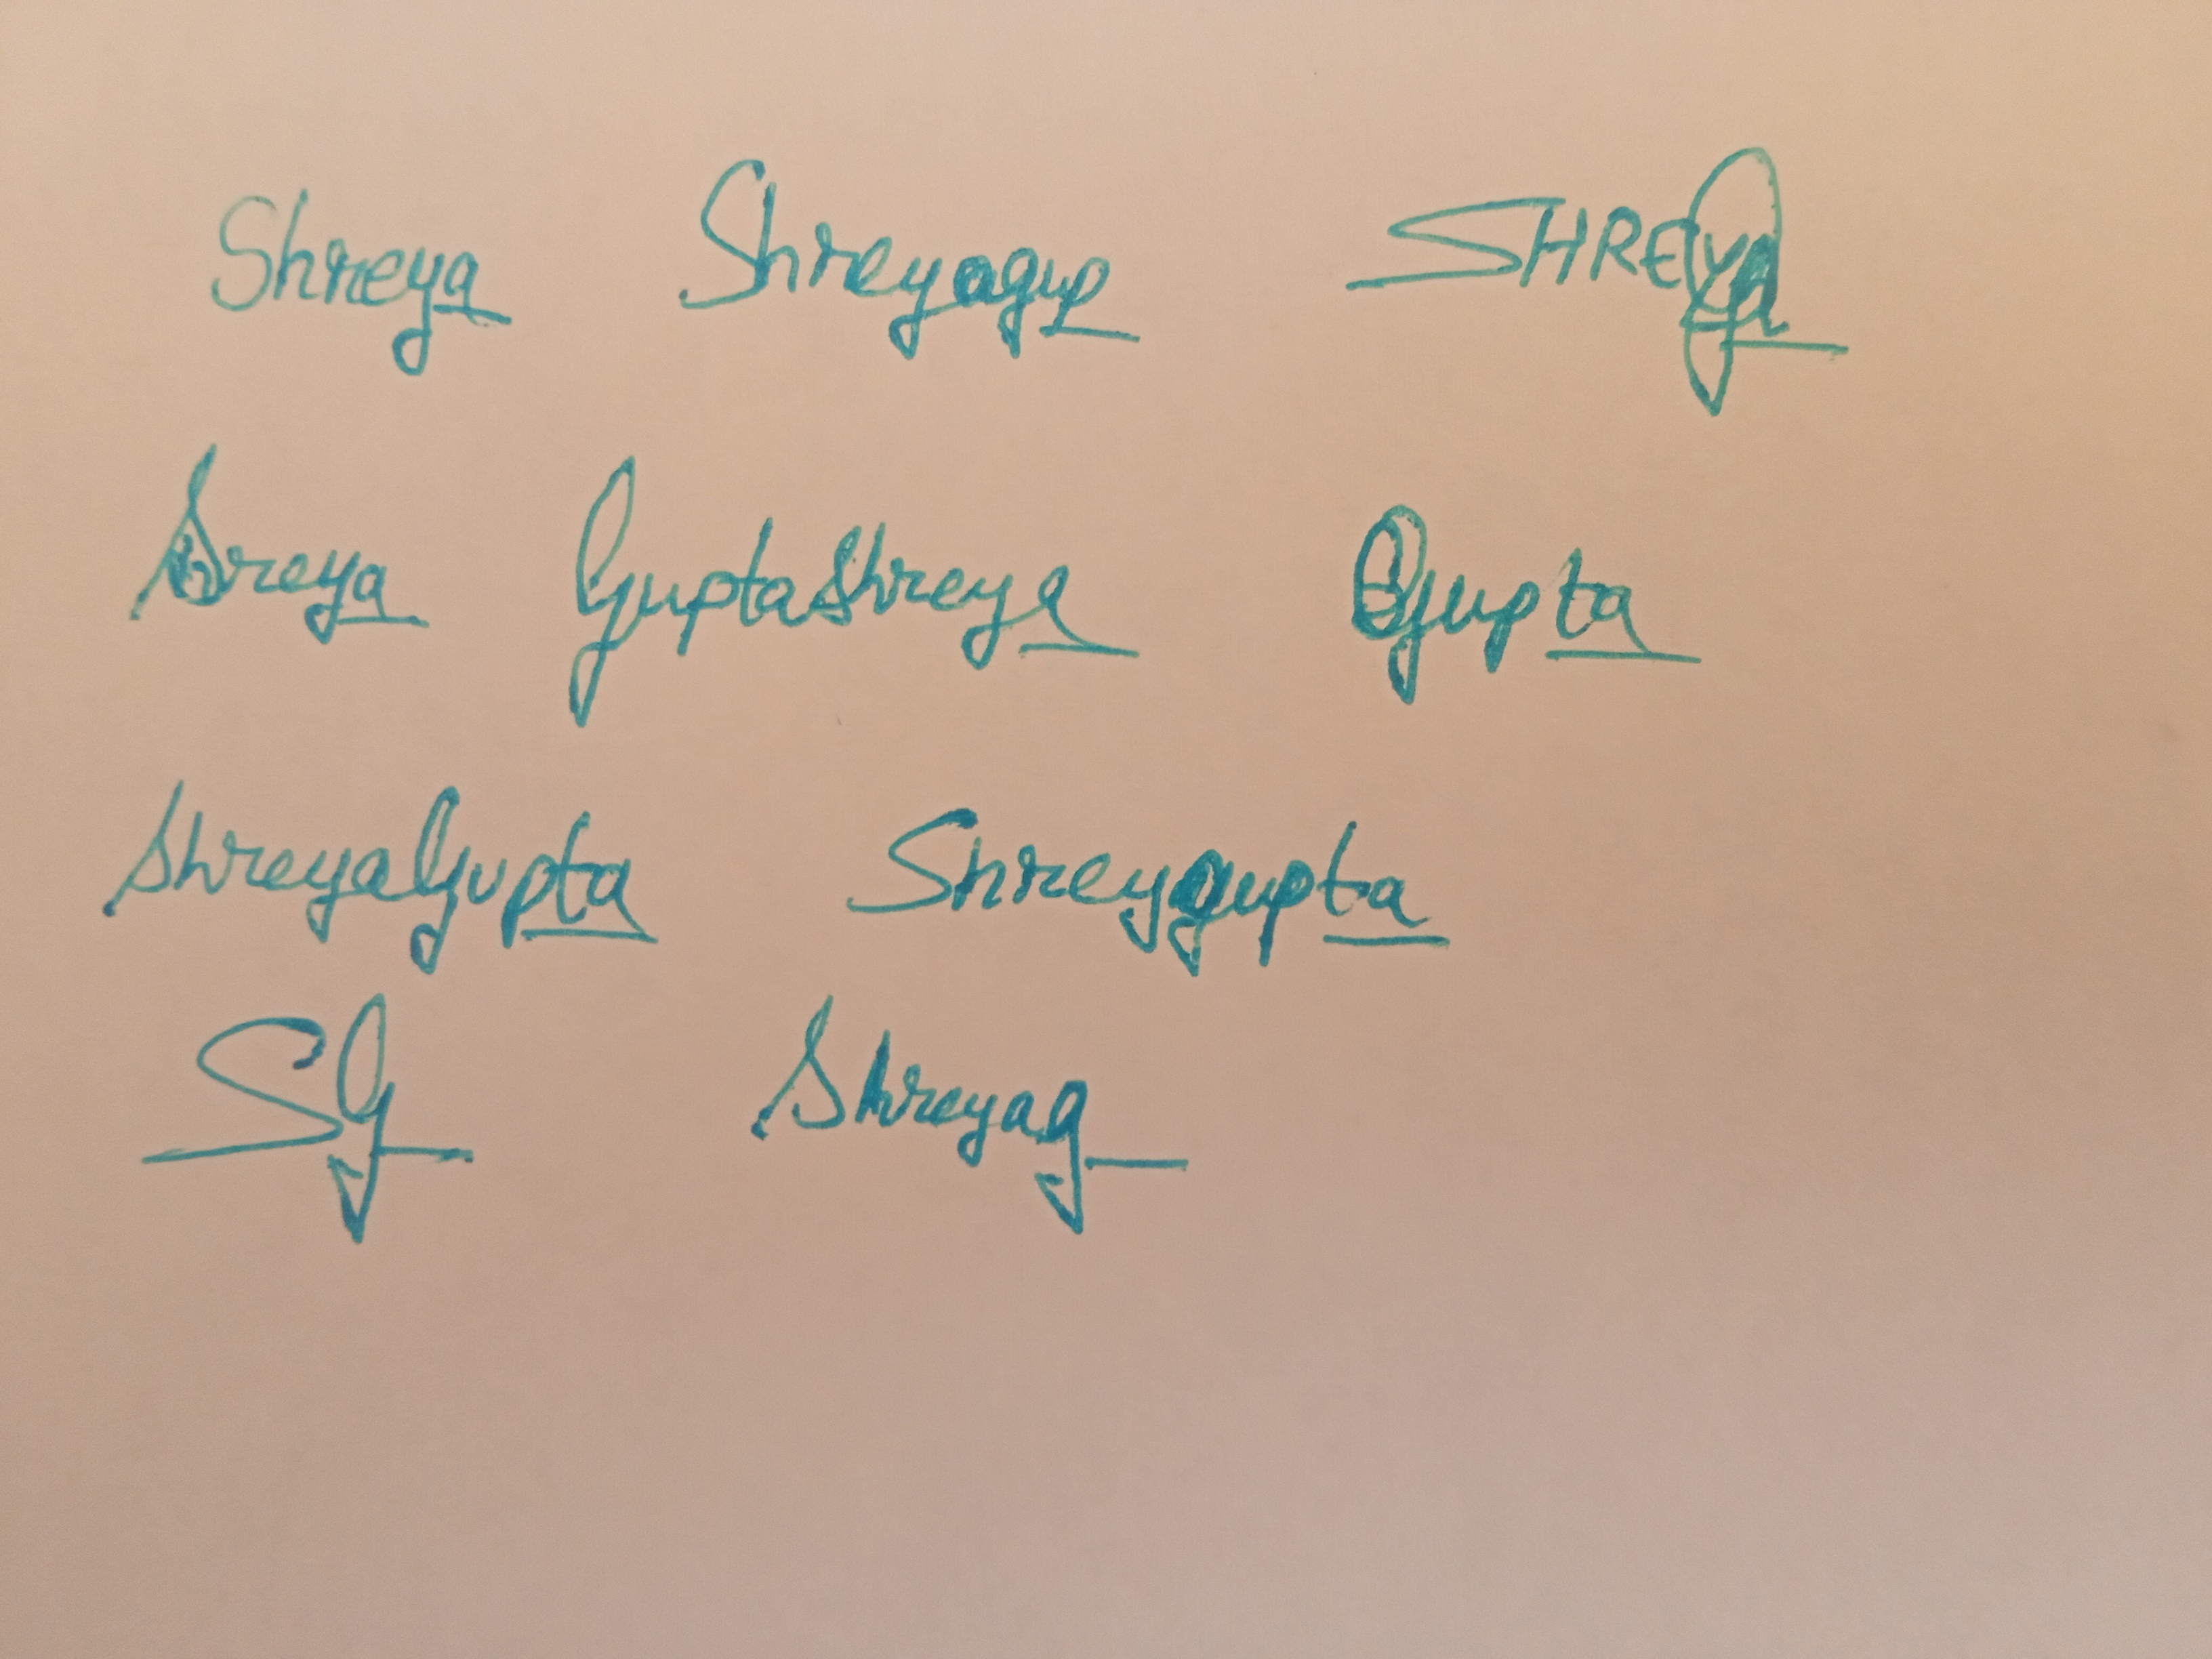 Shreya Shreyagup SHREYA
Shreya GuptaShreya Gupta
ShreyaGupta Shreyagupta
SG Shreyag